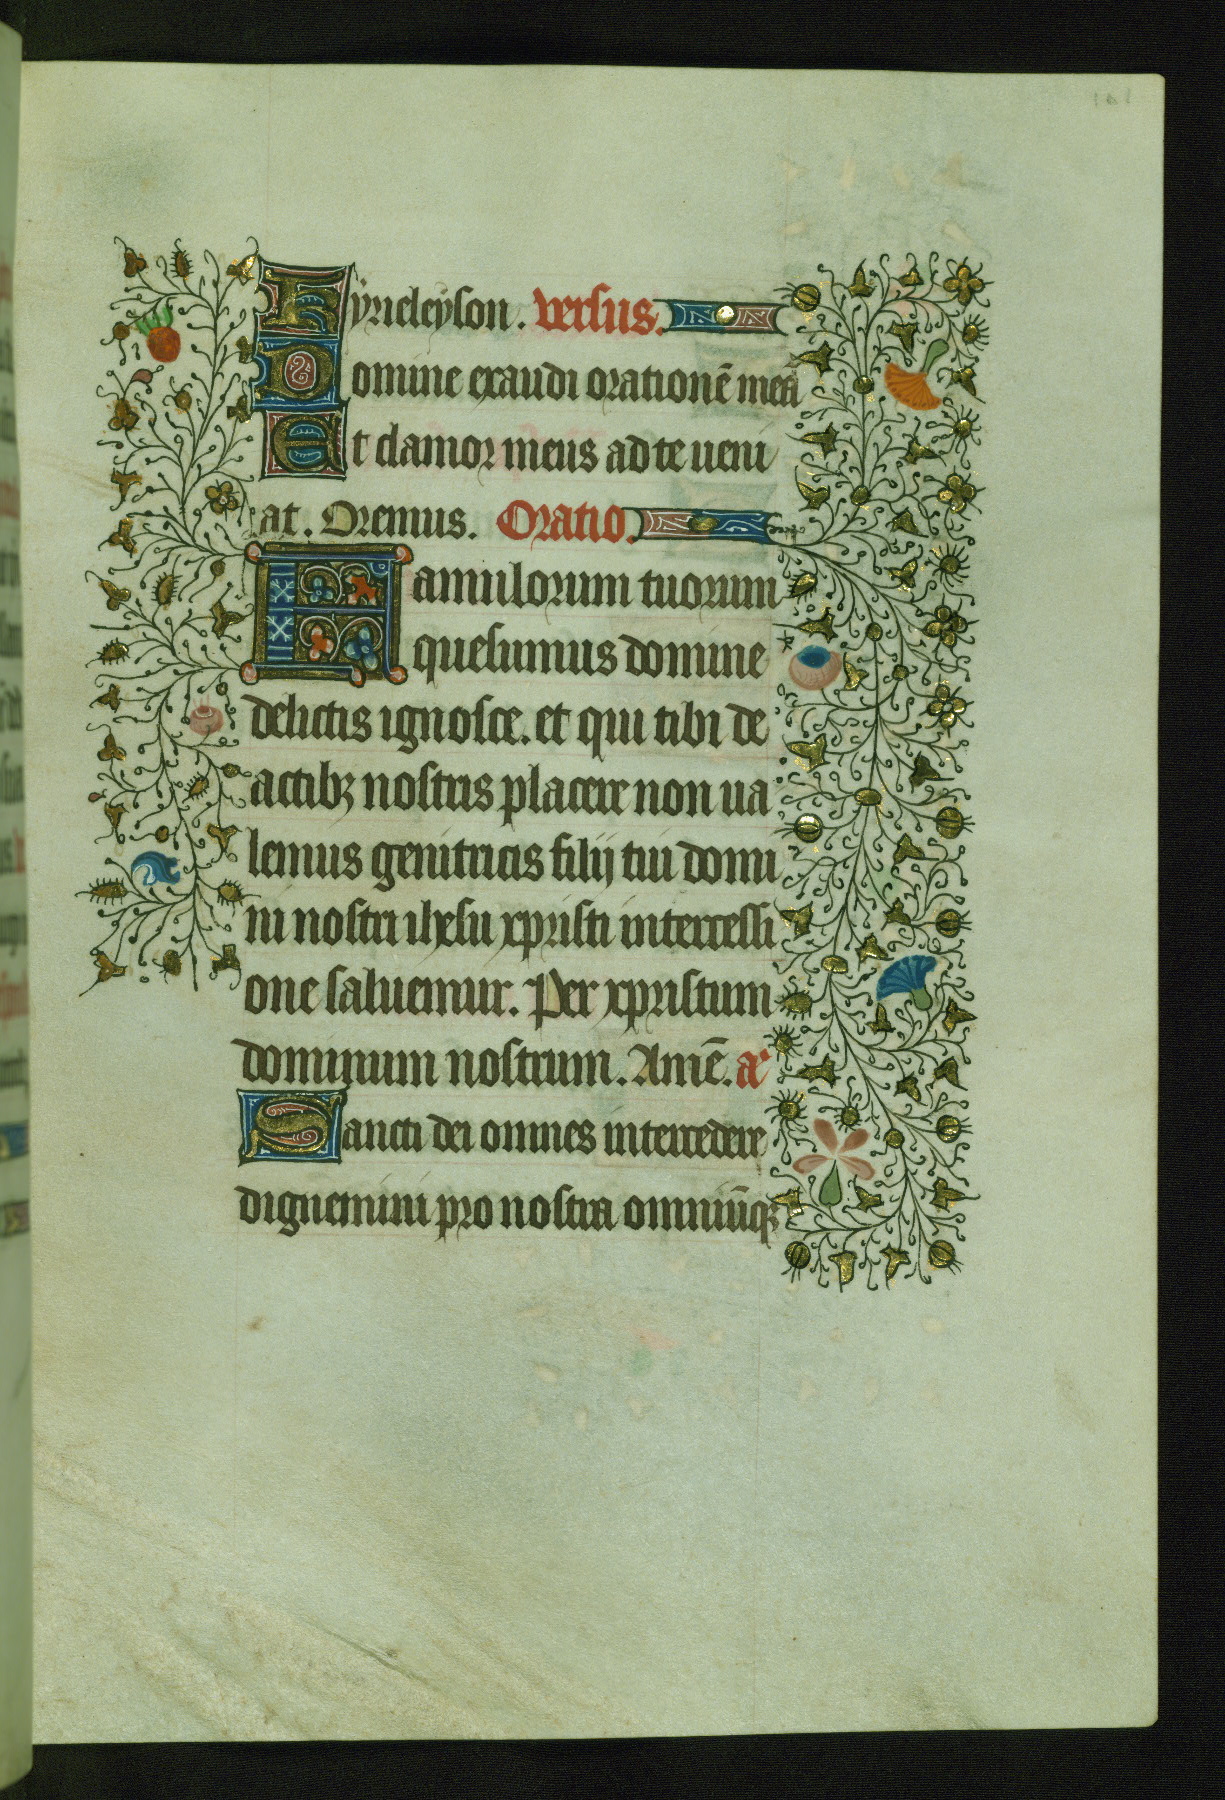 Kyrieleyson. versus.
Domine exaudi orationē meā
Et clamor meus ad te veni
at. Oremus. Oratio.
Famulorum tuorum
quesumus domine
delictis ignosce. et qui tibi de
actibꝫ nostris placere non ua
lemus genitricis filij tui domi
ni nostri ihesu xpristi intercessi
one saluemur. Per xpristum
dominum nostrum. Amē. aᵒ
Sancti dei omnes intercedere
dignemini pro nostra omniūqꝫ